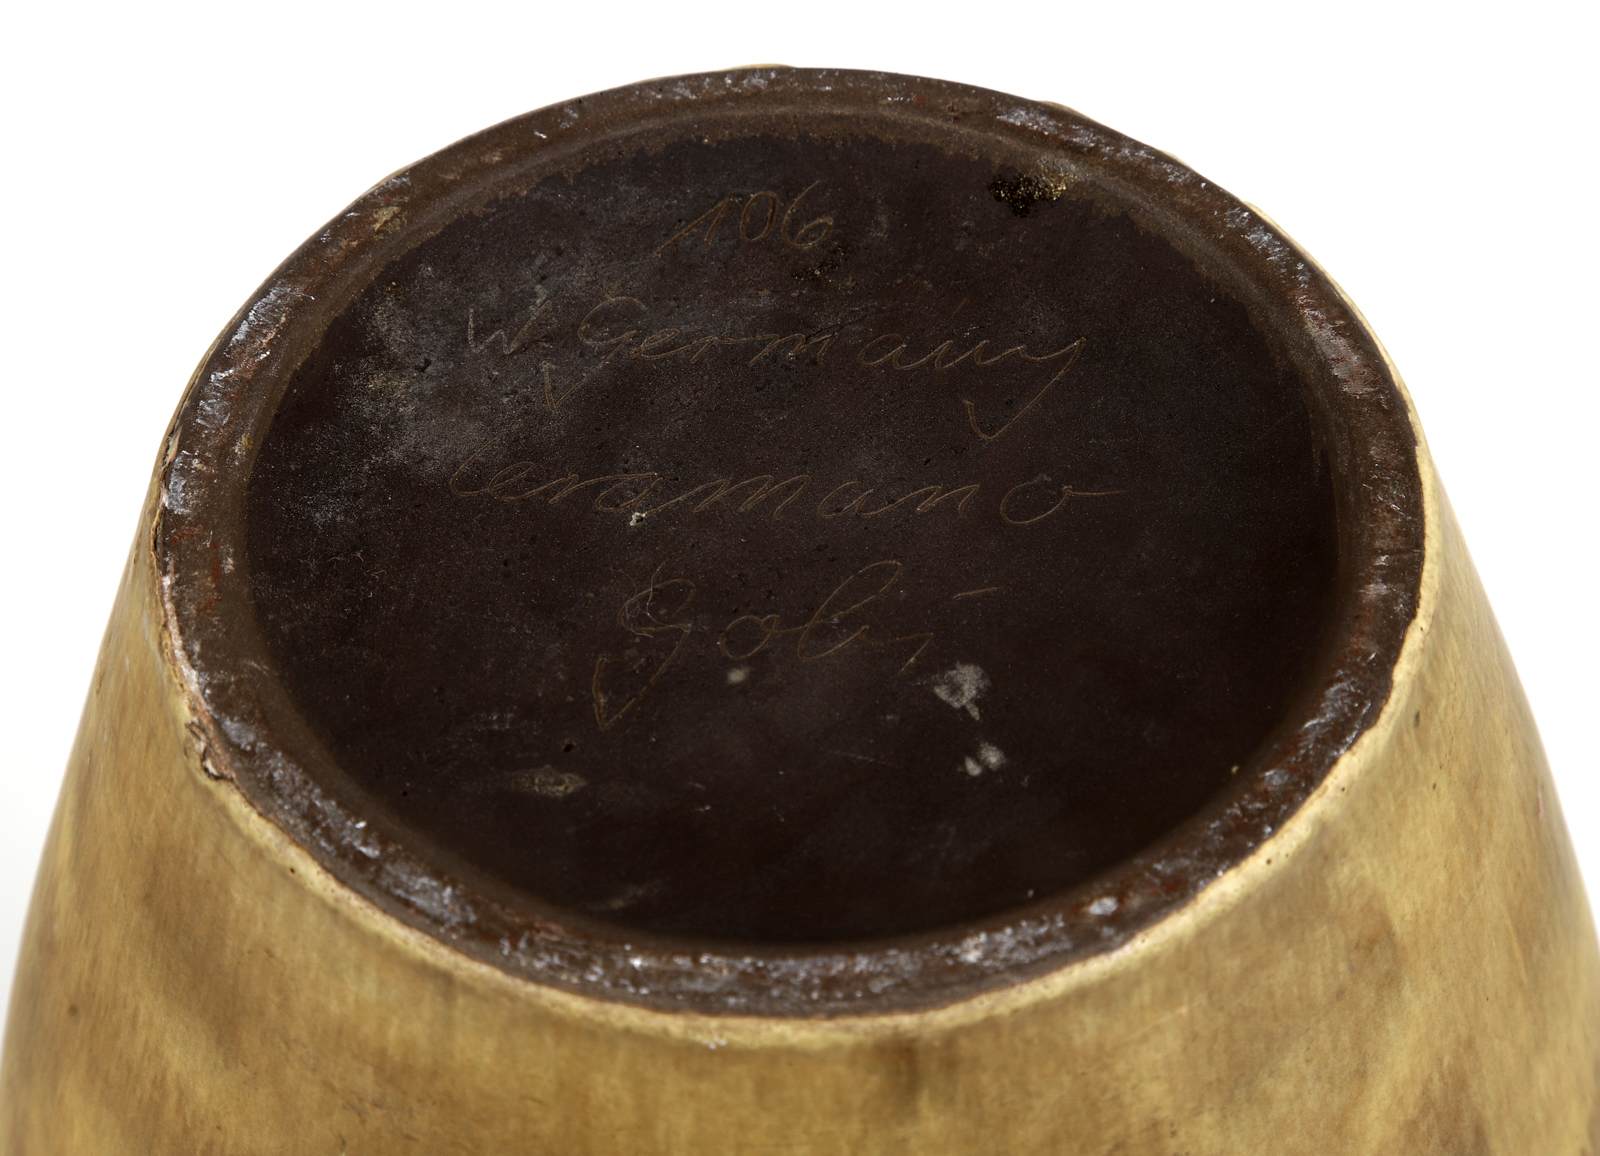 106
W. Germany
Ceramano
Gobi